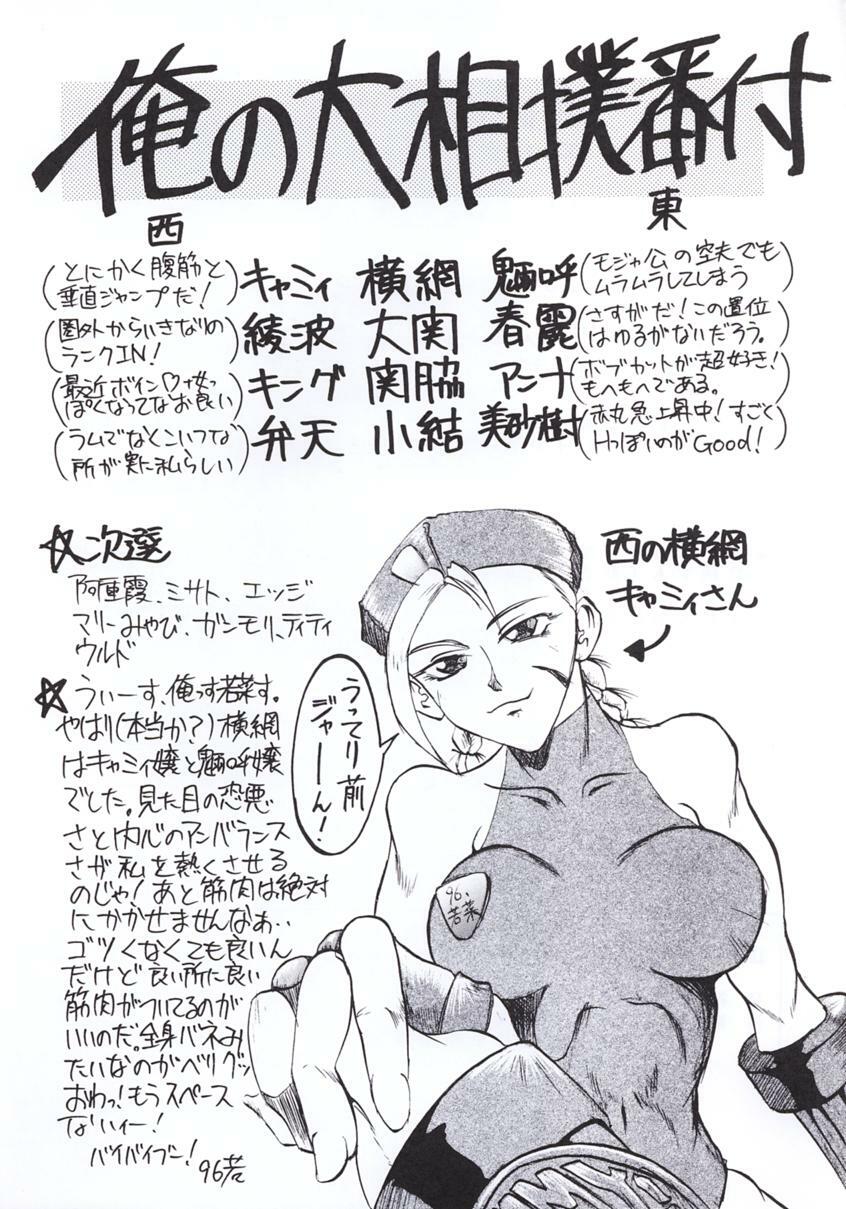 俺の大相撲番付
西
東
(とにかく腹筋と
垂直ジャンプだ!)
キャミィ 横網 魎呼
(モジャ公の空夫でも
ムラムラしてしまう)
(圏外からいきなりの
ランクIN!)
綾波 大関 春麗
(さすがだ!この置位
はゆるがないだろう。)
(最近ボイン♡女っ
ぽくなってなお良い)
キング 関脇 アンナ
(ボブカットが超好き!
もへもへである。)
(ラムでなくこいつな
所が実に私らしい)
弁天 小結 美砂樹
(赤丸急上昇中!すごく
Hっぽいのが Good!)
☆次選
阿重霞、ミサト、エッジ
マリーみやび、ガンモリ、ティティ
ウルド
西の横網
キャミィさん
うってり前
ジャーーん!
☆うぃーす、俺っす若菜す。
やはり(本当か?)横網
はキャミィ嬢と魎呼嬢
でした。見た目の恐悪
さと内心のアンバランス
さが私を熱くさせる
のじゃ!あと筋肉は絶対
にかかせませんなぁ‥
ゴツくなくても良いん
だけど良い所に良い
筋肉がついてるのが
いいのだ。全身バネみ
たいなのがベリグッ
おわっ!もうスペース
ないィー!
バイバイブー!
96若
96、
若菜